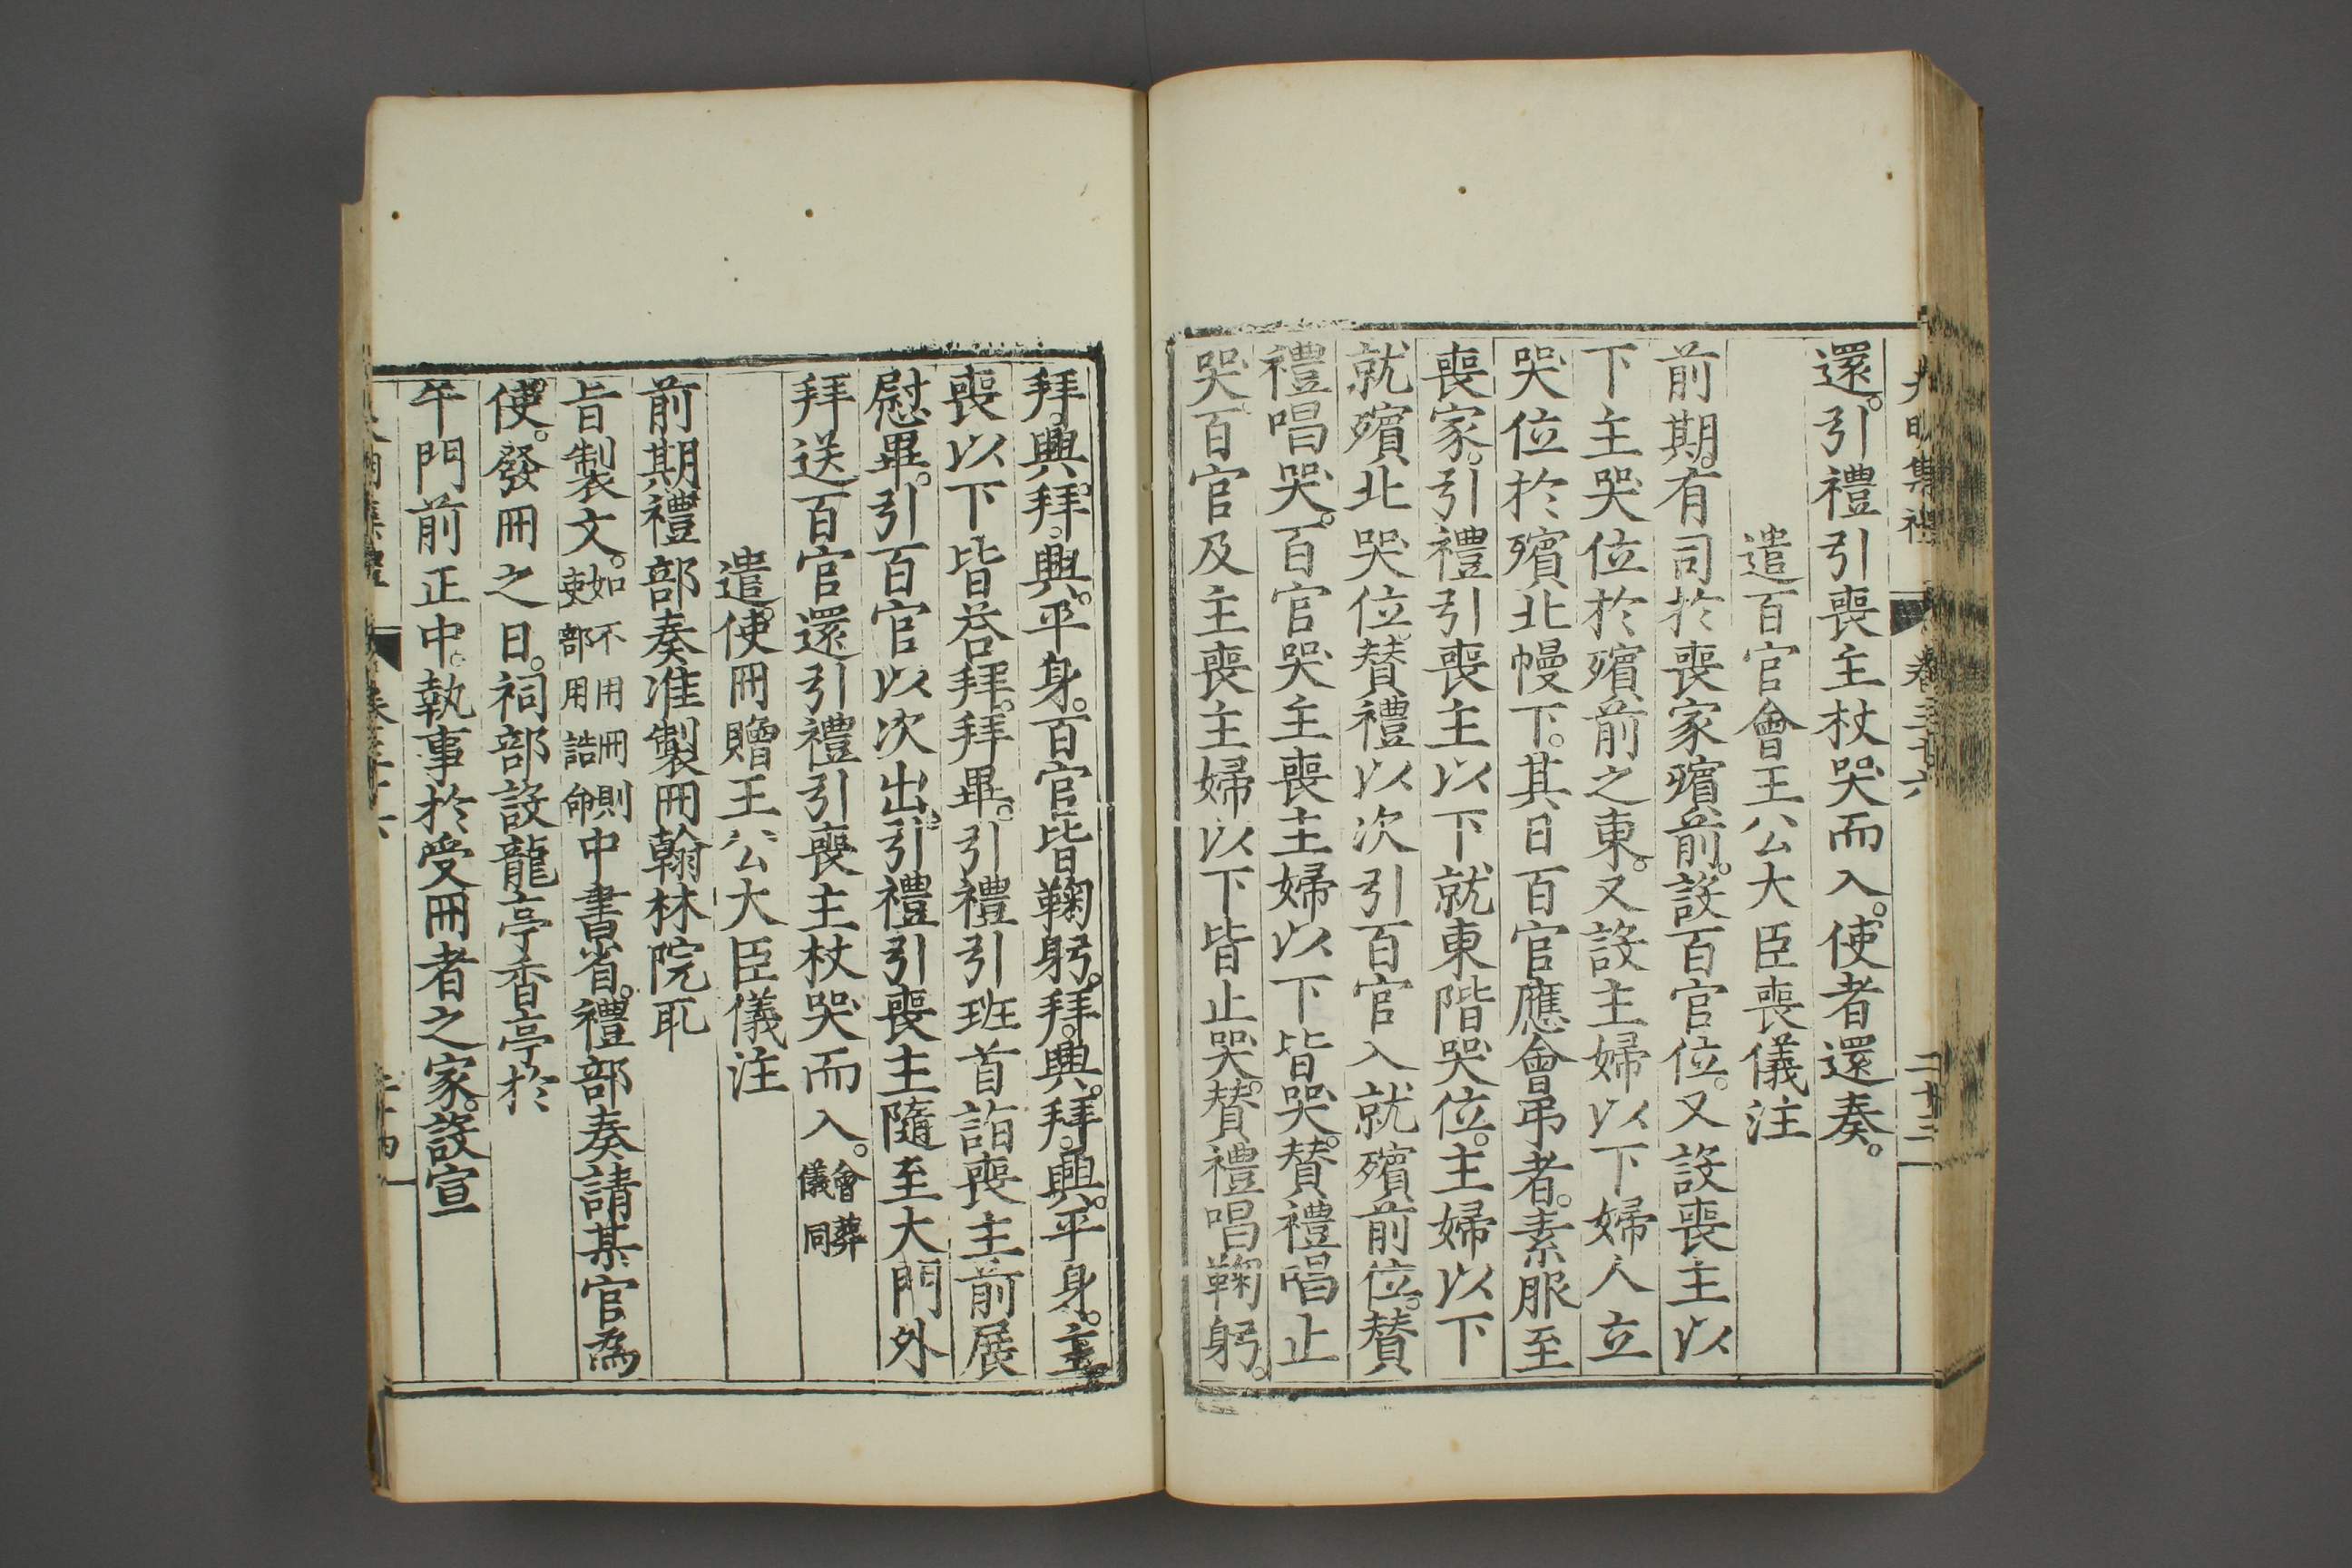 大明集禮 卷三十六 二十三
還。引禮引喪主杖哭而入。使者還奏。
遣百官會王公大臣喪儀注
前期。有司於喪家殯前。設百官位。又設喪主以
下主哭位於殯前之東。又設主婦以下婦人立
哭位於殯北幔下。其日百官應會弔者。素服至
喪家。引禮引喪主以下就東階哭位。主婦以下
就殯北哭位。贊禮以次引百官入就殯前位。贊
禮唱哭。百官哭主喪主婦以下皆哭。贊禮唱止
哭百官及主喪主婦以下皆止哭。贊禮唱鞠躬。
拜。興。拜。興。平身。百官皆鞠躬。拜。興。拜。興。平身。主
喪以下皆荅拜。拜畢。引禮引班首詣喪主前展
慰畢。引百官以次出。引禮引喪主隨至大門外
拜送百官還引禮引喪主杖哭而入。會葬儀同
遣使冊贈王公大臣儀注
前期禮部奏准製冊翰林院取
旨製文。如不用冊則吏部用誥命中書省。禮部奏請某官為
使。發冊之日。祠部設龍亭香亭於
午門前正中。執事於受冊者之家。設宣